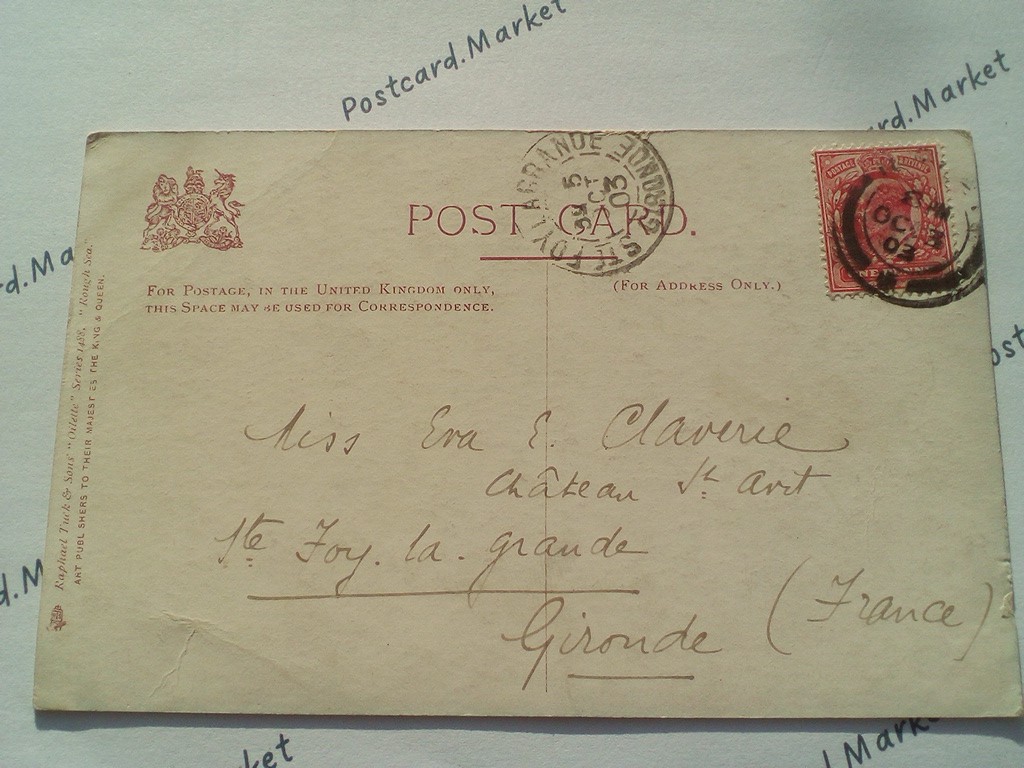 Postcard.Market
rd.Market
POST CARD.
FOR POSTAGE, IN THE UNITED KINGDOM ONLY,
THIS SPACE MAY BE USED FOR CORRESPONDENCE.
(FOR ADDRESS ONLY.)
STE FOY LA GRANDE GIRONDE
5
OCT
03
POSTAGE REVENUE
ONE PENNY
OC 3
03
Miss Eva E. Claverie
Château St. Avit
Ste Foy. la. grande
Gironde (France)
Raphael Tuck & Sons' "Oilette" Series 1488, "Rough Sea."
ART PUBL SHERS TO THEIR MAJEST ES THE KING & QUEEN.
rd.Ma
d.M
ost
ket
l.Mark